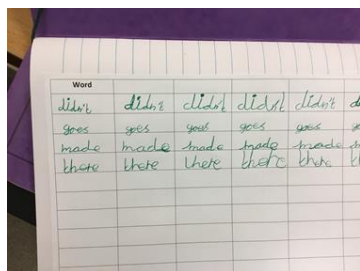 Word
didn't didn't didn't didn't didn't
goes goes goes goes goes
made made made made made
there there there there there